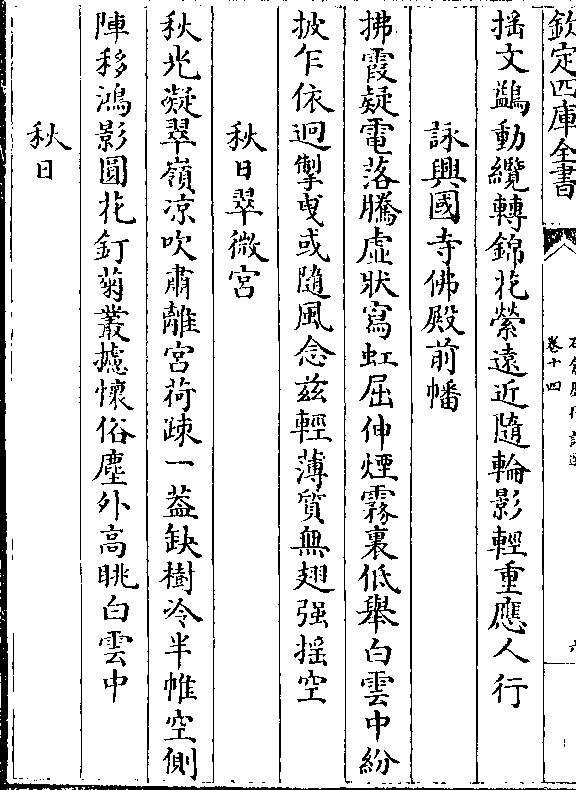 欽定四庫全書
卷十四
揺文鷁動纜轉錦花縈遠近隨輪影輕重應人行
詠興國寺佛殿前幡
拂霞疑電落騰虚狀寫虹屈伸煙霧裏低舉白雲中紛
披乍依迥掣曳或隨風念兹輕薄質無翅强揺空
秋日翠微宫
秋光凝翠嶺凉吹肅離宫荷疎一葢缺樹冷半帷空側
陣移鴻影圓花釘菊叢攄懷俗塵外高眺白雲中
秋日